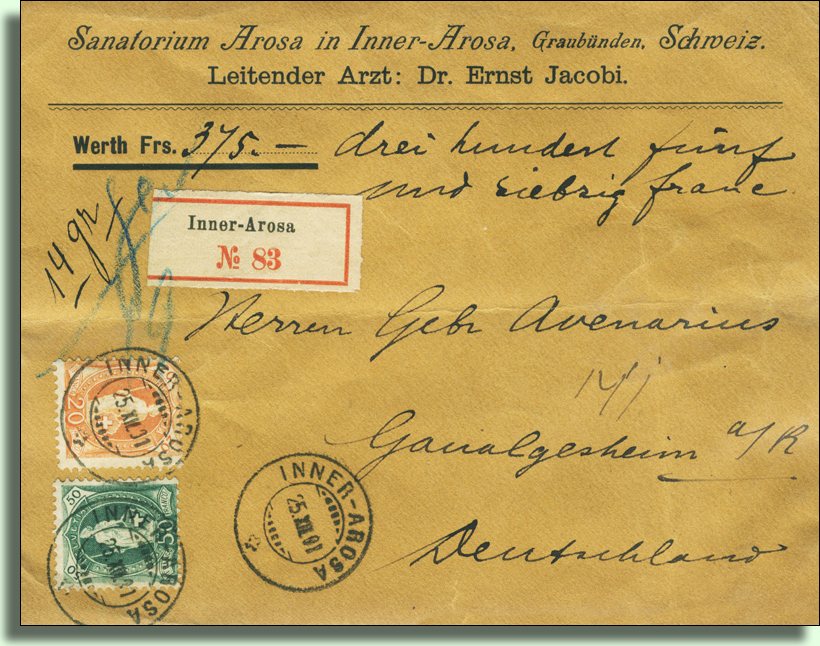 Sanatorium Arosa in Inner-Arosa, Graubünden, Schweiz.
Leitender Arzt: Dr. Ernst Jacobi.
Werth Frs. 375.— drei hundert fünf
und siebzig franc
14 gr
Inner-Arosa
№ 83
Herren Gebr Avenarius
Gaualgesheim a/R
Deutschland
INNER-AROSA
25.XII.01
20
INNER-AROSA
25.XII.01
50
50
50
INNER-AROSA
25.XII.01